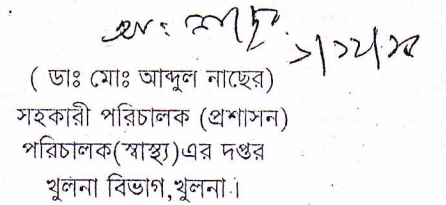 ( ডাঃ মোঃ আব্দুল নাছের)
সহকারী পরিচালক (প্রশাসন)
পরিচালক(স্বাস্থ্য)এর দপ্তর
খুলনা বিভাগ,খুলনা।